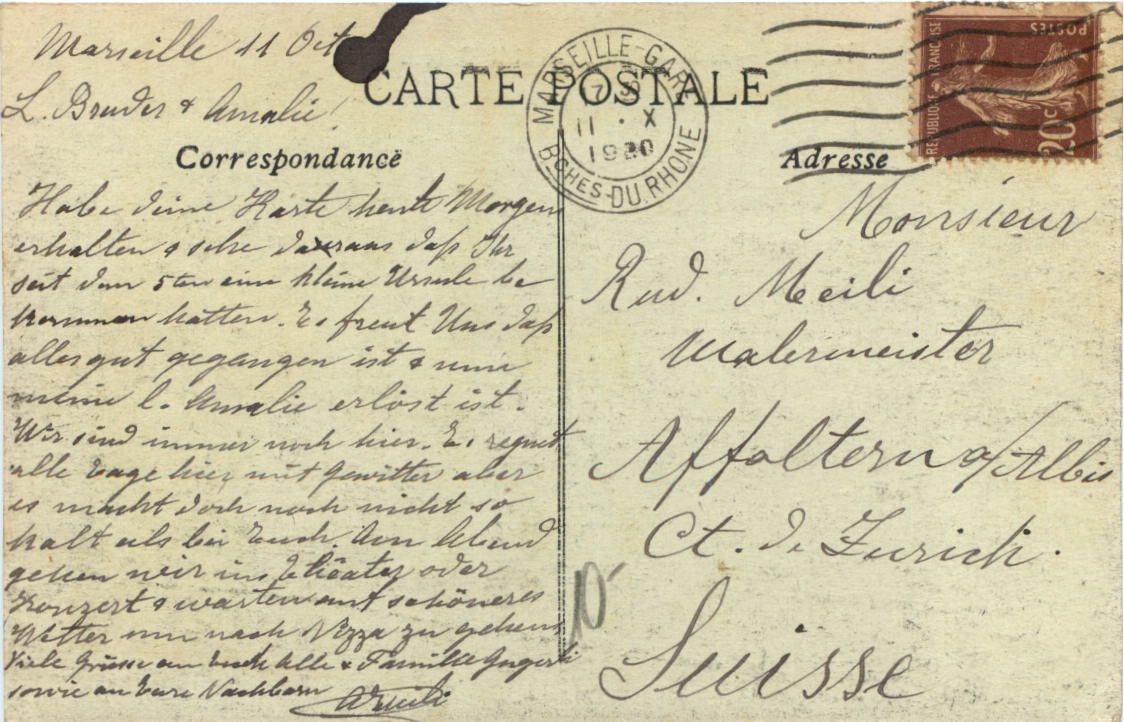 Marseille 11 Oct
L. Bruder & Amalie!
CARTE POSTALE
Correspondance
Habe deine Karte heute Morgen
erhalten & sehe daraus daß Ihr
seit dem 5ten eine kleine Ursule be
kommen hatten. Es freut Uns daß
alles gut gegangen ist & nun
meine l. Amalie erlöst ist.
Wir sind immer noch hier. Es regnet
alle Tage hier mit Gewitter aber
es macht doch noch nicht so
kalt als bei Euch. Am Abend
gehen wir ins Théater oder
Konzert & warten auf schöneres
Wetter um nach Nizza zu gehen
Viele Grüsse an Euch Alle & Familie
sowie an Eure Nachbarn
MARSEILLE-GARE
11 X
1920
BCHES-DU-RHONE
REPUBLIQUE FRANÇAISE
POSTES
20c
Adresse
Monsieur
Rud. Meili
Malermeister
Affoltern a/Albis
Ct. de Zurich.
Suisse
10-